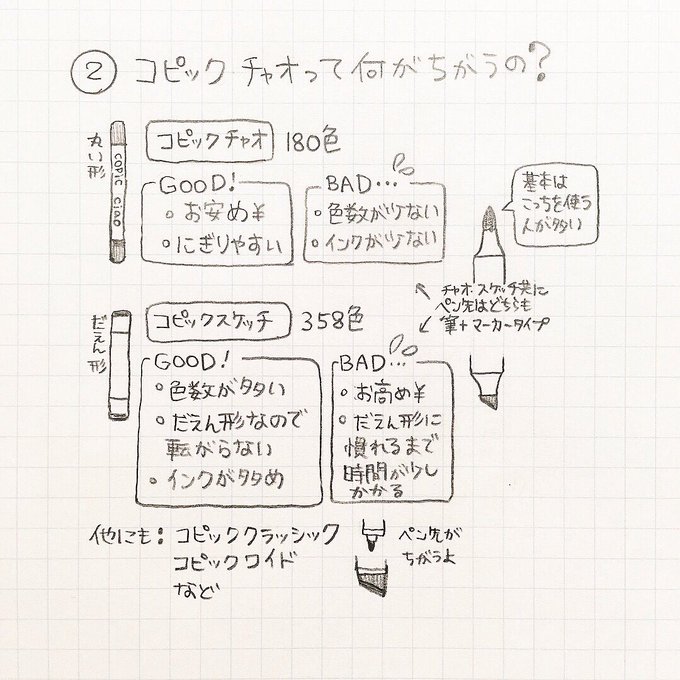 ② コピックチャオって何がちがうの?
丸い形
COPIC ciao
コピックチャオ 180色
GOOD!
・お安め¥
・にぎりやすい
BAD…
・色数が少ない
・インクが少ない
基本は
こっちを使う
人が多い
チャオ、スケッチ共に
ペン先はどちらも
筆+マーカータイプ
だえん形
コピックスケッチ 358色
GOOD!
・色数が多い
・だえん形なので
転がらない
・インクが多め
BAD…
・お高め¥
・だえん形に
慣れるまで
時間が少し
かかる
他にも: コピッククラッシック
コピックワイド
など
ペン先が
ちがうよ